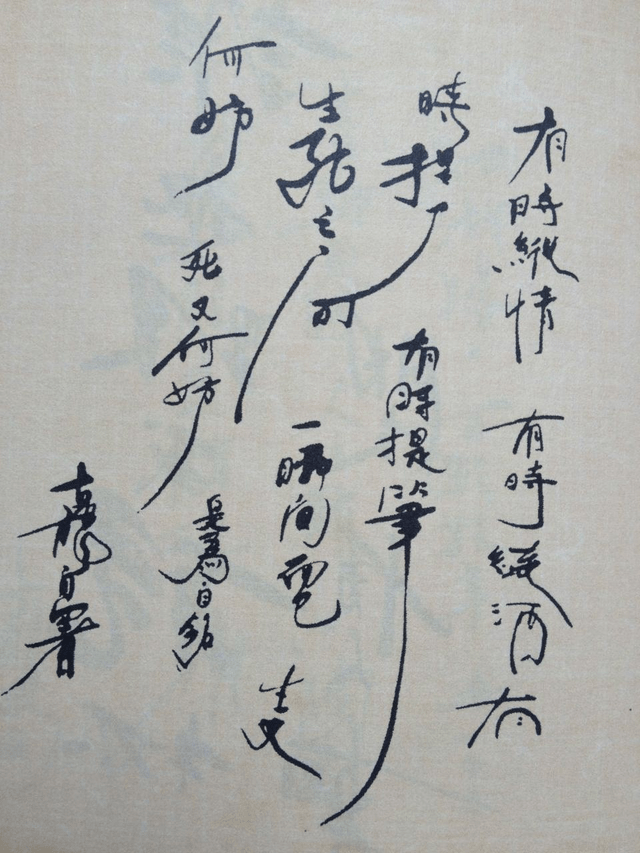 有時縱情 有時縱酒 有
時提刀 有時提筆
生死之 一瞬间 生又
何妨 死又何妨 是為自銘
自署